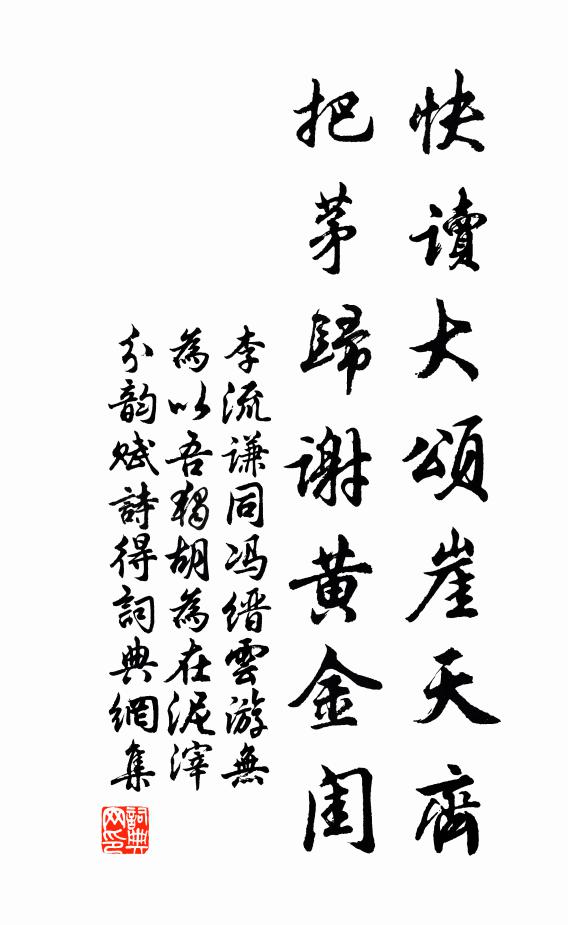 快讀大頌崖天齊
把茅歸謝黃金閨
李流谦同冯缙雲游無
為以吾獨胡為在泥滓
分韵赋詩得詞典網集
詞典网印